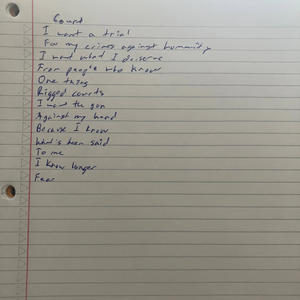 Court
I want a trial
For my crimes against humanity
I want what I deserve
From people who know
One thing
Rigged courts
I want the gun
Against my head
Because I know
What's been said
To me
I know longer
Fear